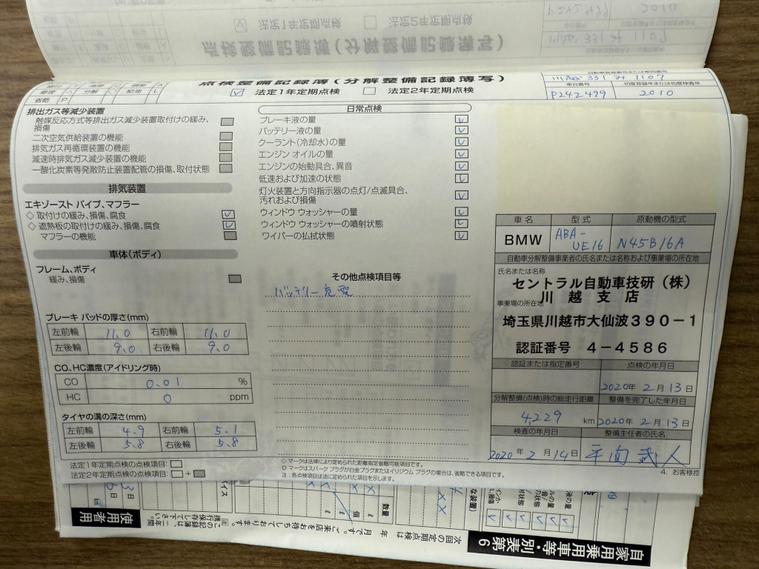 点検整備記録簿(分解整備記録簿写)
法定1年定期点検 法定2年定期点検
P242499
2010
排出ガス等減少装置
触媒反応方式等排出ガス減少装置取付けの緩み、損傷
二次空気供給装置の機能
排気ガス再循環装置の機能
減速時排気ガス減少装置の機能
一酸化炭素等発散防止装置配管の損傷、取付状態
排気装置
エキゾースト パイプ、マフラー
◇ 取付けの緩み、損傷、腐食
◇ 遮熱板の取付けの緩み、損傷、腐食
マフラーの機能
車体(ボディ)
フレーム、ボディ
緩み、損傷
ブレーキ パッドの厚さ(mm)
左前輪 11.0 右前輪 11.0
左後輪 9.0 右後輪 9.0
CO、HC濃度(アイドリング時)
CO 0.01 %
HC 0 ppm
タイヤの溝の深さ(mm)
左前輪 4.9 右前輪 5.1
左後輪 5.8 右後輪 5.8
法定1年定期点検の点検項目:
法定2年定期点検の点検項目: +
日常点検
ブレーキ液の量
バッテリ液の量
クーラント(冷却水)の量
エンジン オイルの量
エンジンの始動具合、異音
低速および加速の状態
灯火装置と方向指示器の点灯/点滅具合、
汚れおよび損傷
ウィンドウ ウォッシャーの量
ウィンドウ ウォッシャーの噴射状態
ワイパーの払拭状態
その他点検項目等
バッテリー充電
◇ マークは法律により定められた距離指定省略可能項目です。
注:各点検項目は法に定められた項目を示します。
車名 型式 原動機の型式
BMW ABA-UE16 N45B16A
自動車分解整備事業者の氏名または名称および事業場の所在地
氏名または名称
セントラル自動車技研(株)
川越支店
事業場の所在地
埼玉県川越市大仙波390-1
認証番号 4-4586
認証または指定番号 点検の年月日
2020年2月13日
分解整備(点検)時の総走行距離 整備を完了した年月日
4,229 km 2020年2月13日
検査の年月日 整備主任者の氏名
2020年2月14日
4. お客様控
自家用乗用車等・別表第6
使用者用